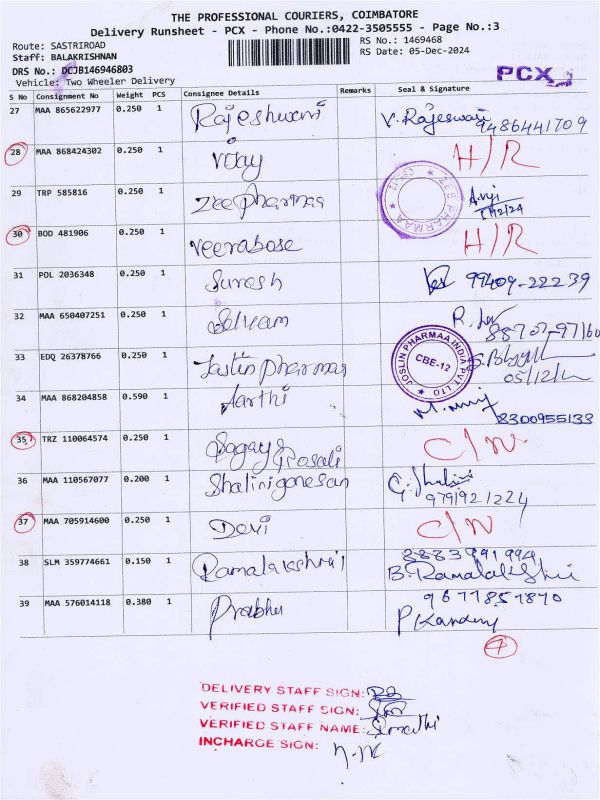 THE PROFESSIONAL COURIERS, COIMBATORE
Delivery Runsheet - PCX - Phone No.:0422-3505555 - Page No.:3
Route: SASTRIROAD
RS No.: 1469468
Staff: BALAKRISHNAN
RS Date: 05-Dec-2024
DRS No.: DCJB146946803
Vehicle: Two Wheeler Delivery
PCX
S No Consignment No Weight PCS Consignee Details Remarks Seal & Signature
27 MAA 865622977 0.250 1 Rajeshwari V. Rajeswari
9486441709
28 MAA 868424302 0.250 1 Vijay H/R
29 TRP 585816 0.250 1 Zee pharmaa ZEE PHARMAA
5/12/24
30 BOD 481906 0.250 1 Veerabose H/R
31 POL 2036348 0.250 1 Suresh 99409-22239
32 MAA 650407251 0.250 1 Selvam R.
88707-97160
33 EDQ 26378766 0.250 1 Joslin pharmaa JOSLIN PHARMAA INDIA PVT. LTD
CBE-12
05/12/
34 MAA 868204858 0.590 1 Aarthi
8300955133
35 TRZ 110064574 0.250 1 Sagaya C/N
36 MAA 110567077 0.200 1 Shalini ganesan G. Shalini
9791921224
37 MAA 705914600 0.250 1 Devi C/N
38 SLM 359774661 0.150 1 Ramalakshmi 8883991994
39 MAA 576014118 0.380 1 Prabhu 9677857870
DELIVERY STAFF SIGN:
VERIFIED STAFF SIGN:
VERIFIED STAFF NAME: Sumathi
INCHARGE SIGN: